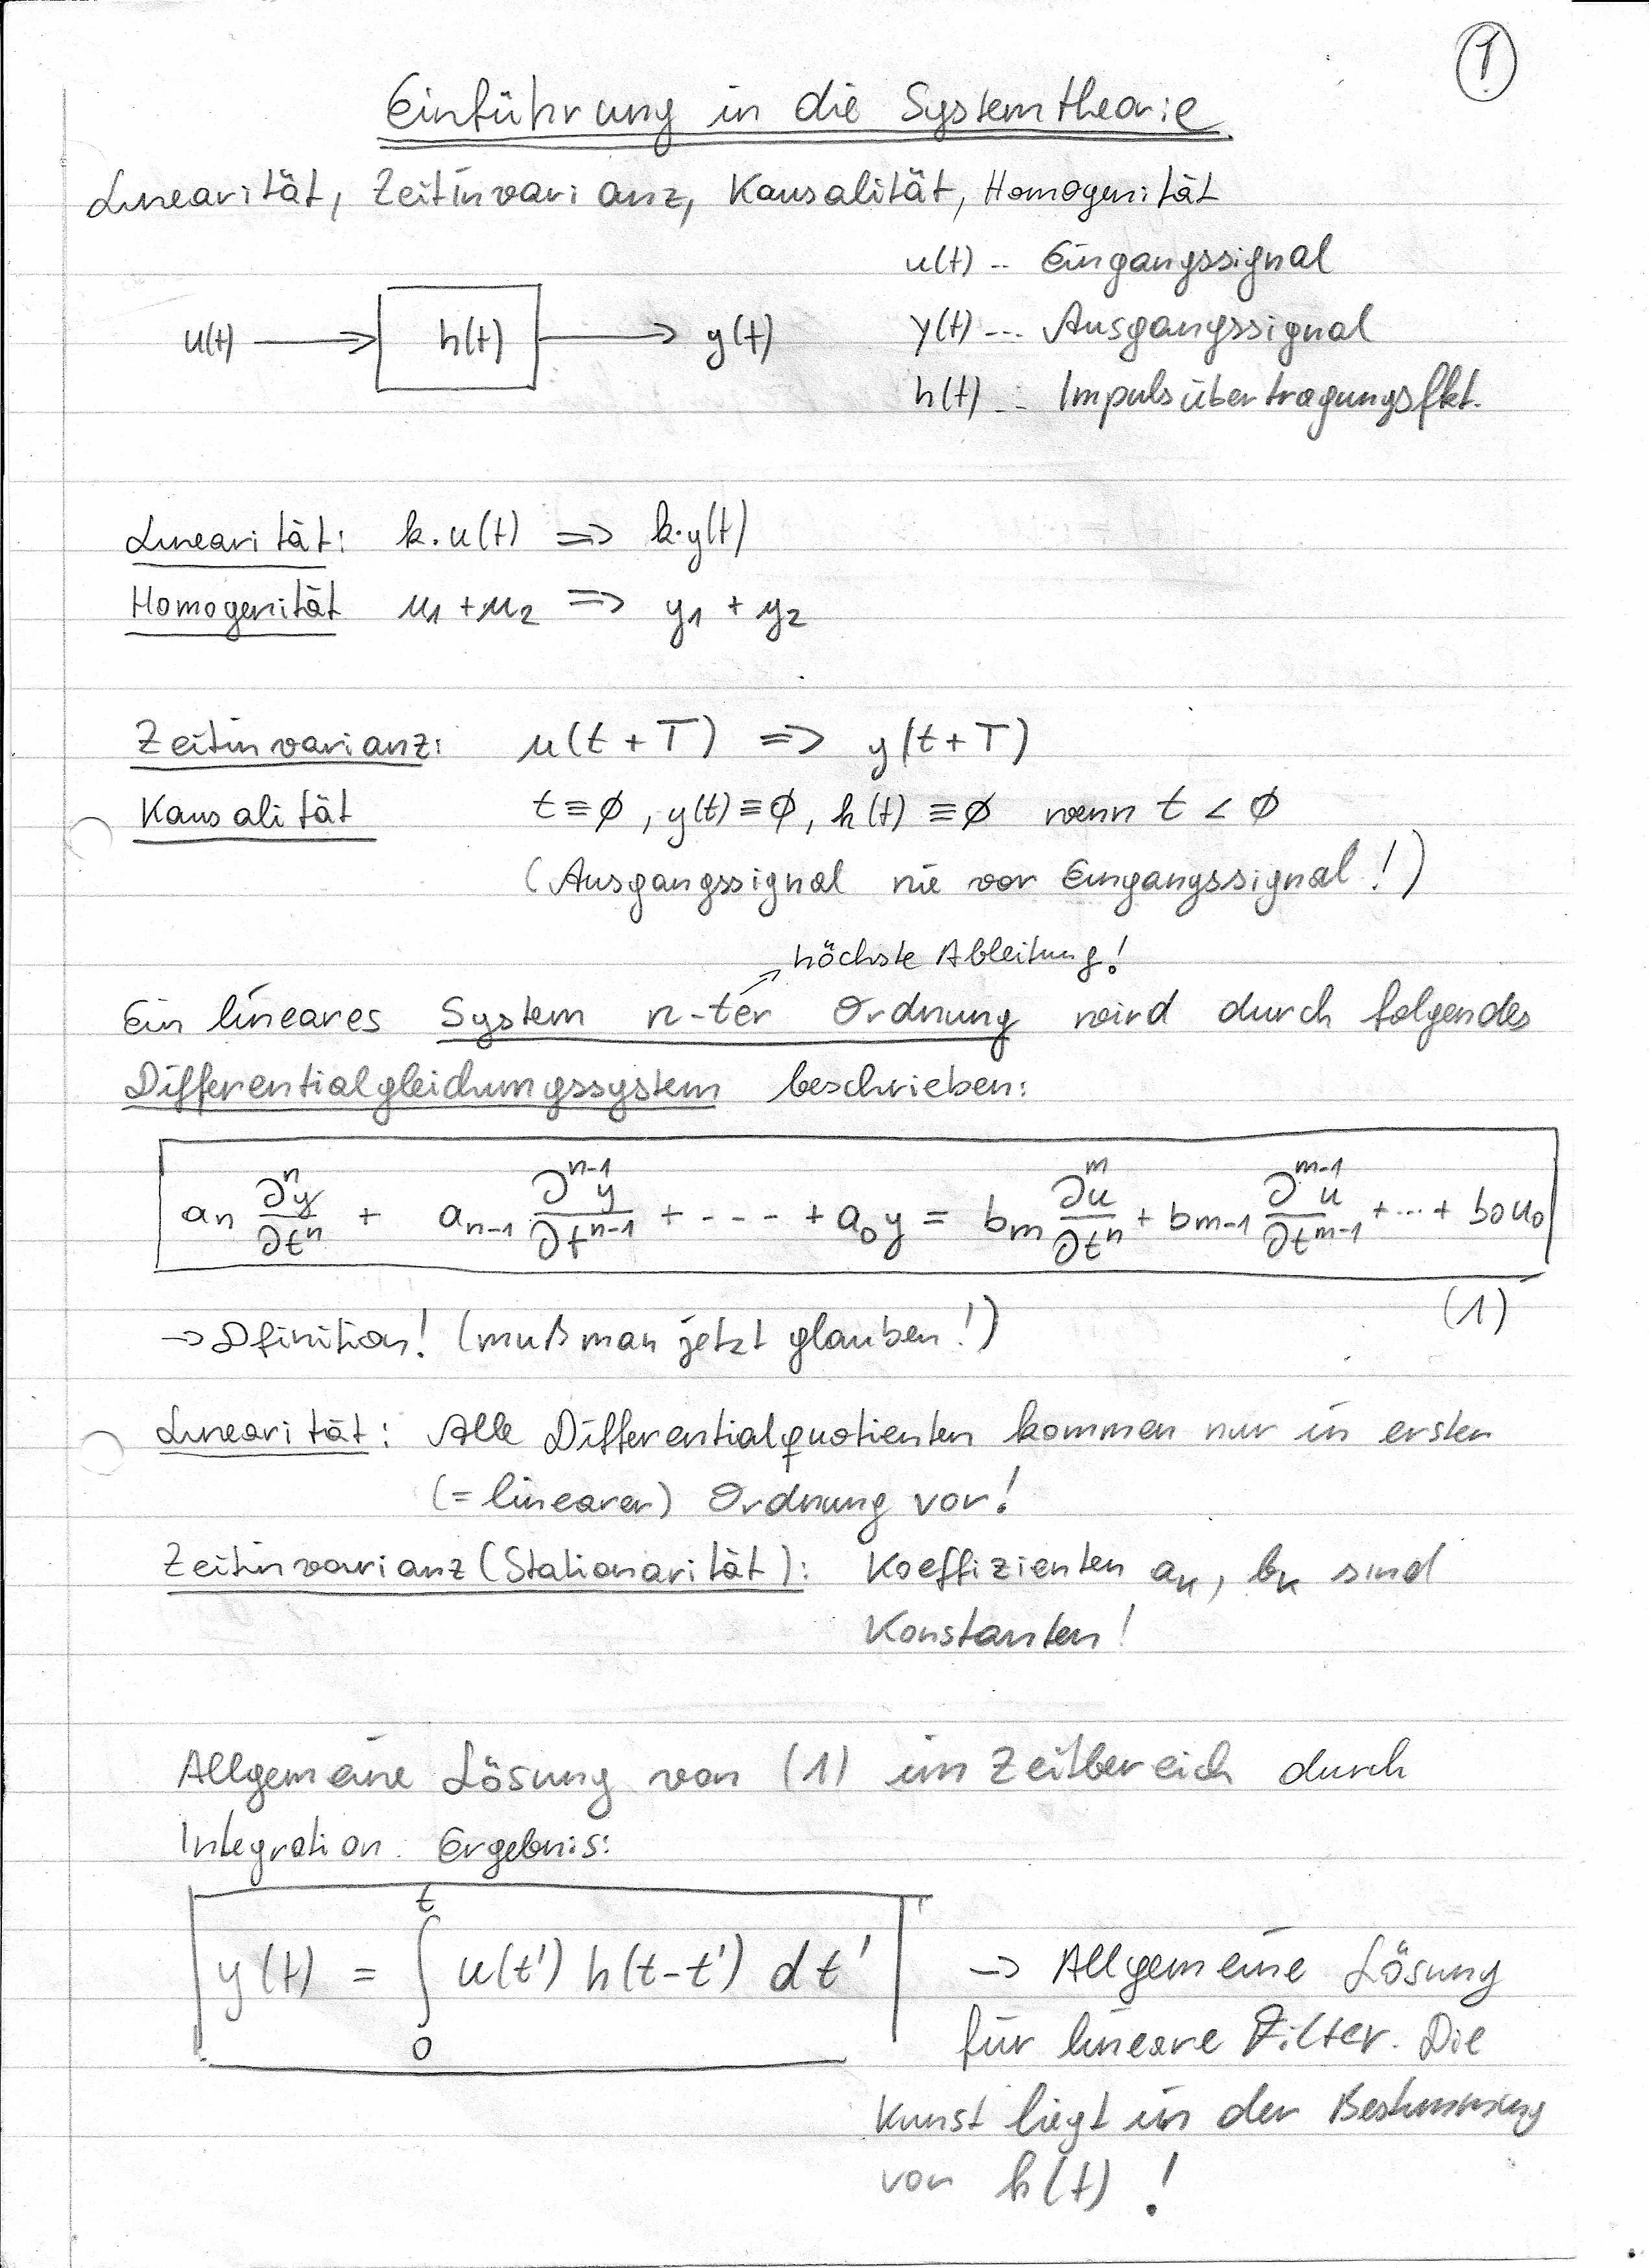 1
Einführung in die Systemtheorie
Linearität, Zeitinvarianz, Kausalität, Homogenität
u(t) .. Eingangssignal
u(t) → h(t) → y(t)
y(t) ... Ausgangssignal
h(t) ... Impulsübertragungsfkt.
Linearität: k.u(t) => k.y(t)
Homogenität u₁ + u₂ => y₁ + y₂
Zeitinvarianz: u(t + T) => y(t + T)
Kausalität t ≡ ∅, y(t) ≡ ∅, h(t) ≡ ∅ wenn t < ∅
(Ausgangssignal nie vor Eingangssignal!)
höchste Ableitung!
Ein lineares System n-ter Ordnung wird durch folgendes
Differentialgleichungssystem beschrieben:
aₙ ∂ⁿy/∂tⁿ + aₙ₋₁ ∂ⁿ⁻¹y/∂tⁿ⁻¹ + - - - - + a₀y = bₘ ∂ᵐu/∂tⁿ + bₘ₋₁ ∂ᵐ⁻¹u/∂tᵐ⁻¹ + ... + b₀u₀
(1)
→ Dfinition! (muß man jetzt glauben!)
Linearität: Alle Differentialquotienten kommen nur in erster
(= linearer) Ordnung vor!
Zeitinvarianz (Stationarität): Koeffizienten aₖ, bₖ sind
Konstanten!
Allgemeine Lösung von (1) im Zeitbereich durch
Integration. Ergebnis:
y(t) = ∫₀ᵗ u(t') h(t-t') dt'
→ Allgemeine Lösung
für lineare Filter. Die
Kunst liegt in der Bestimmung
von h(t) !